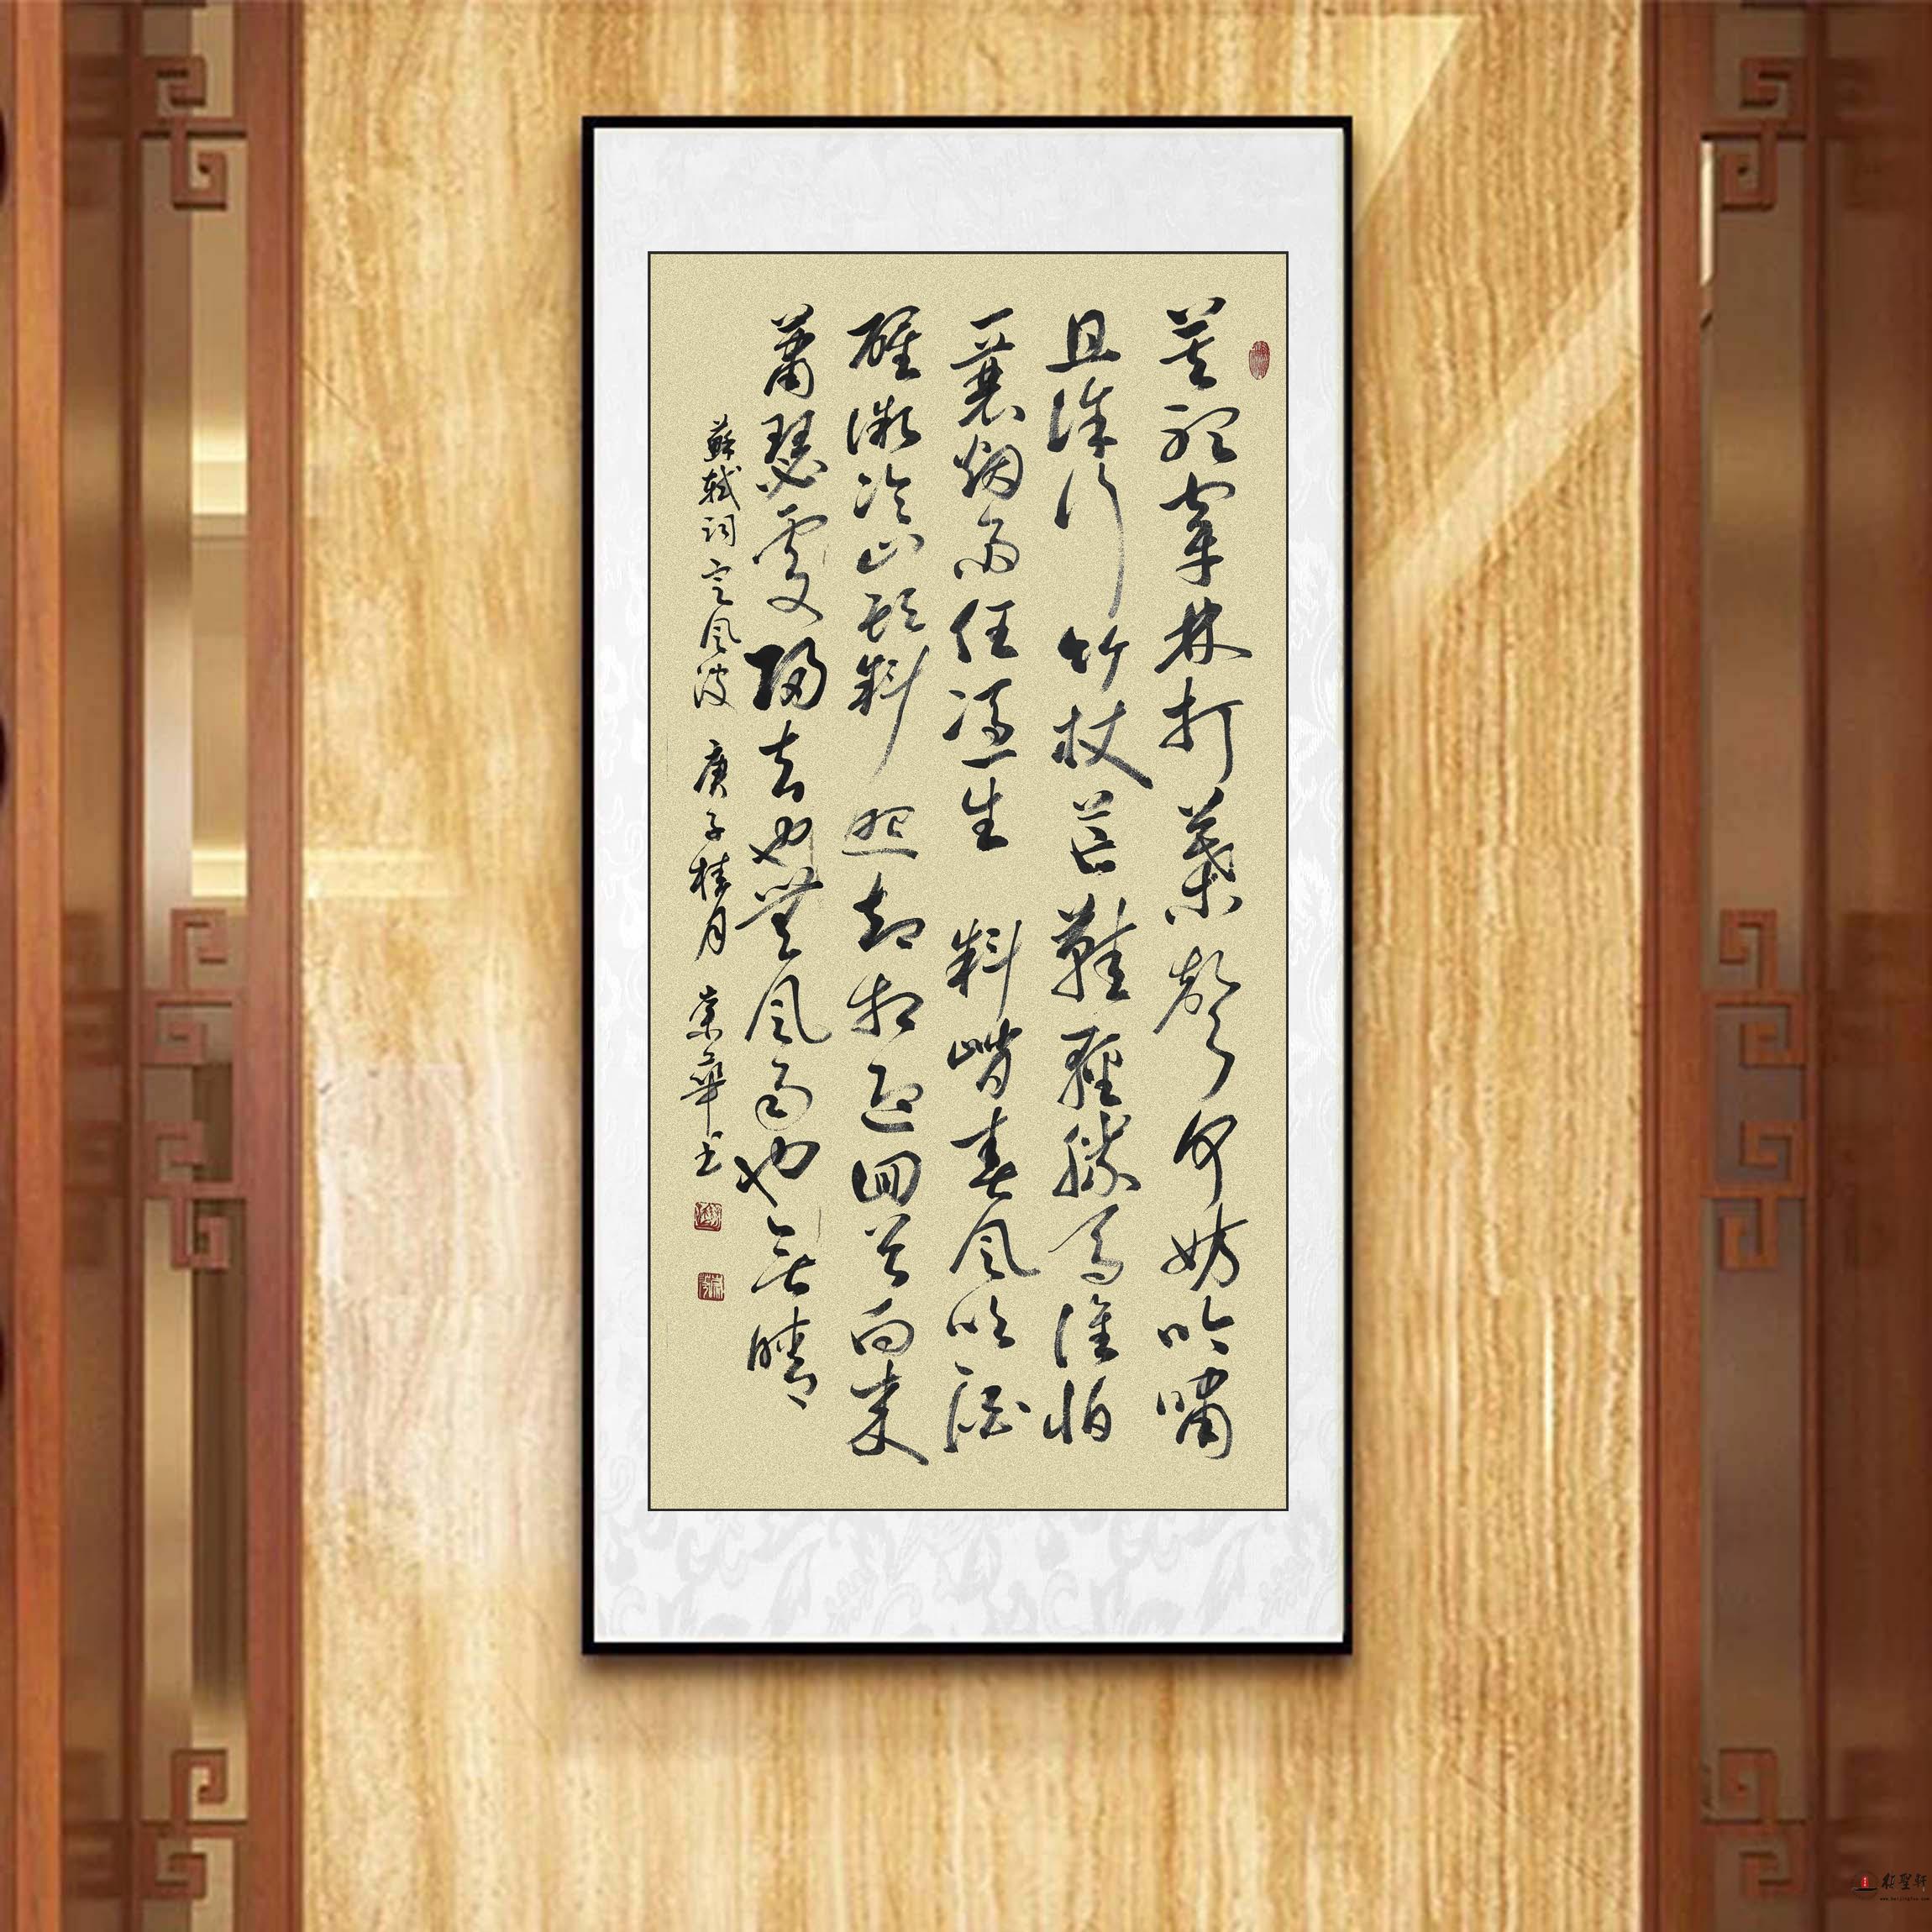 莫聽穿林打葉聲何妨吟嘯
且徐行竹杖芒鞋輕勝馬誰怕
一蓑烟雨任憑生料峭春風吹酒
醒微冷山頭斜照却相迎回首向來
蕭瑟處歸去也無風雨也无晴
蘇軾詞定風波 庚子桂月 崇華書